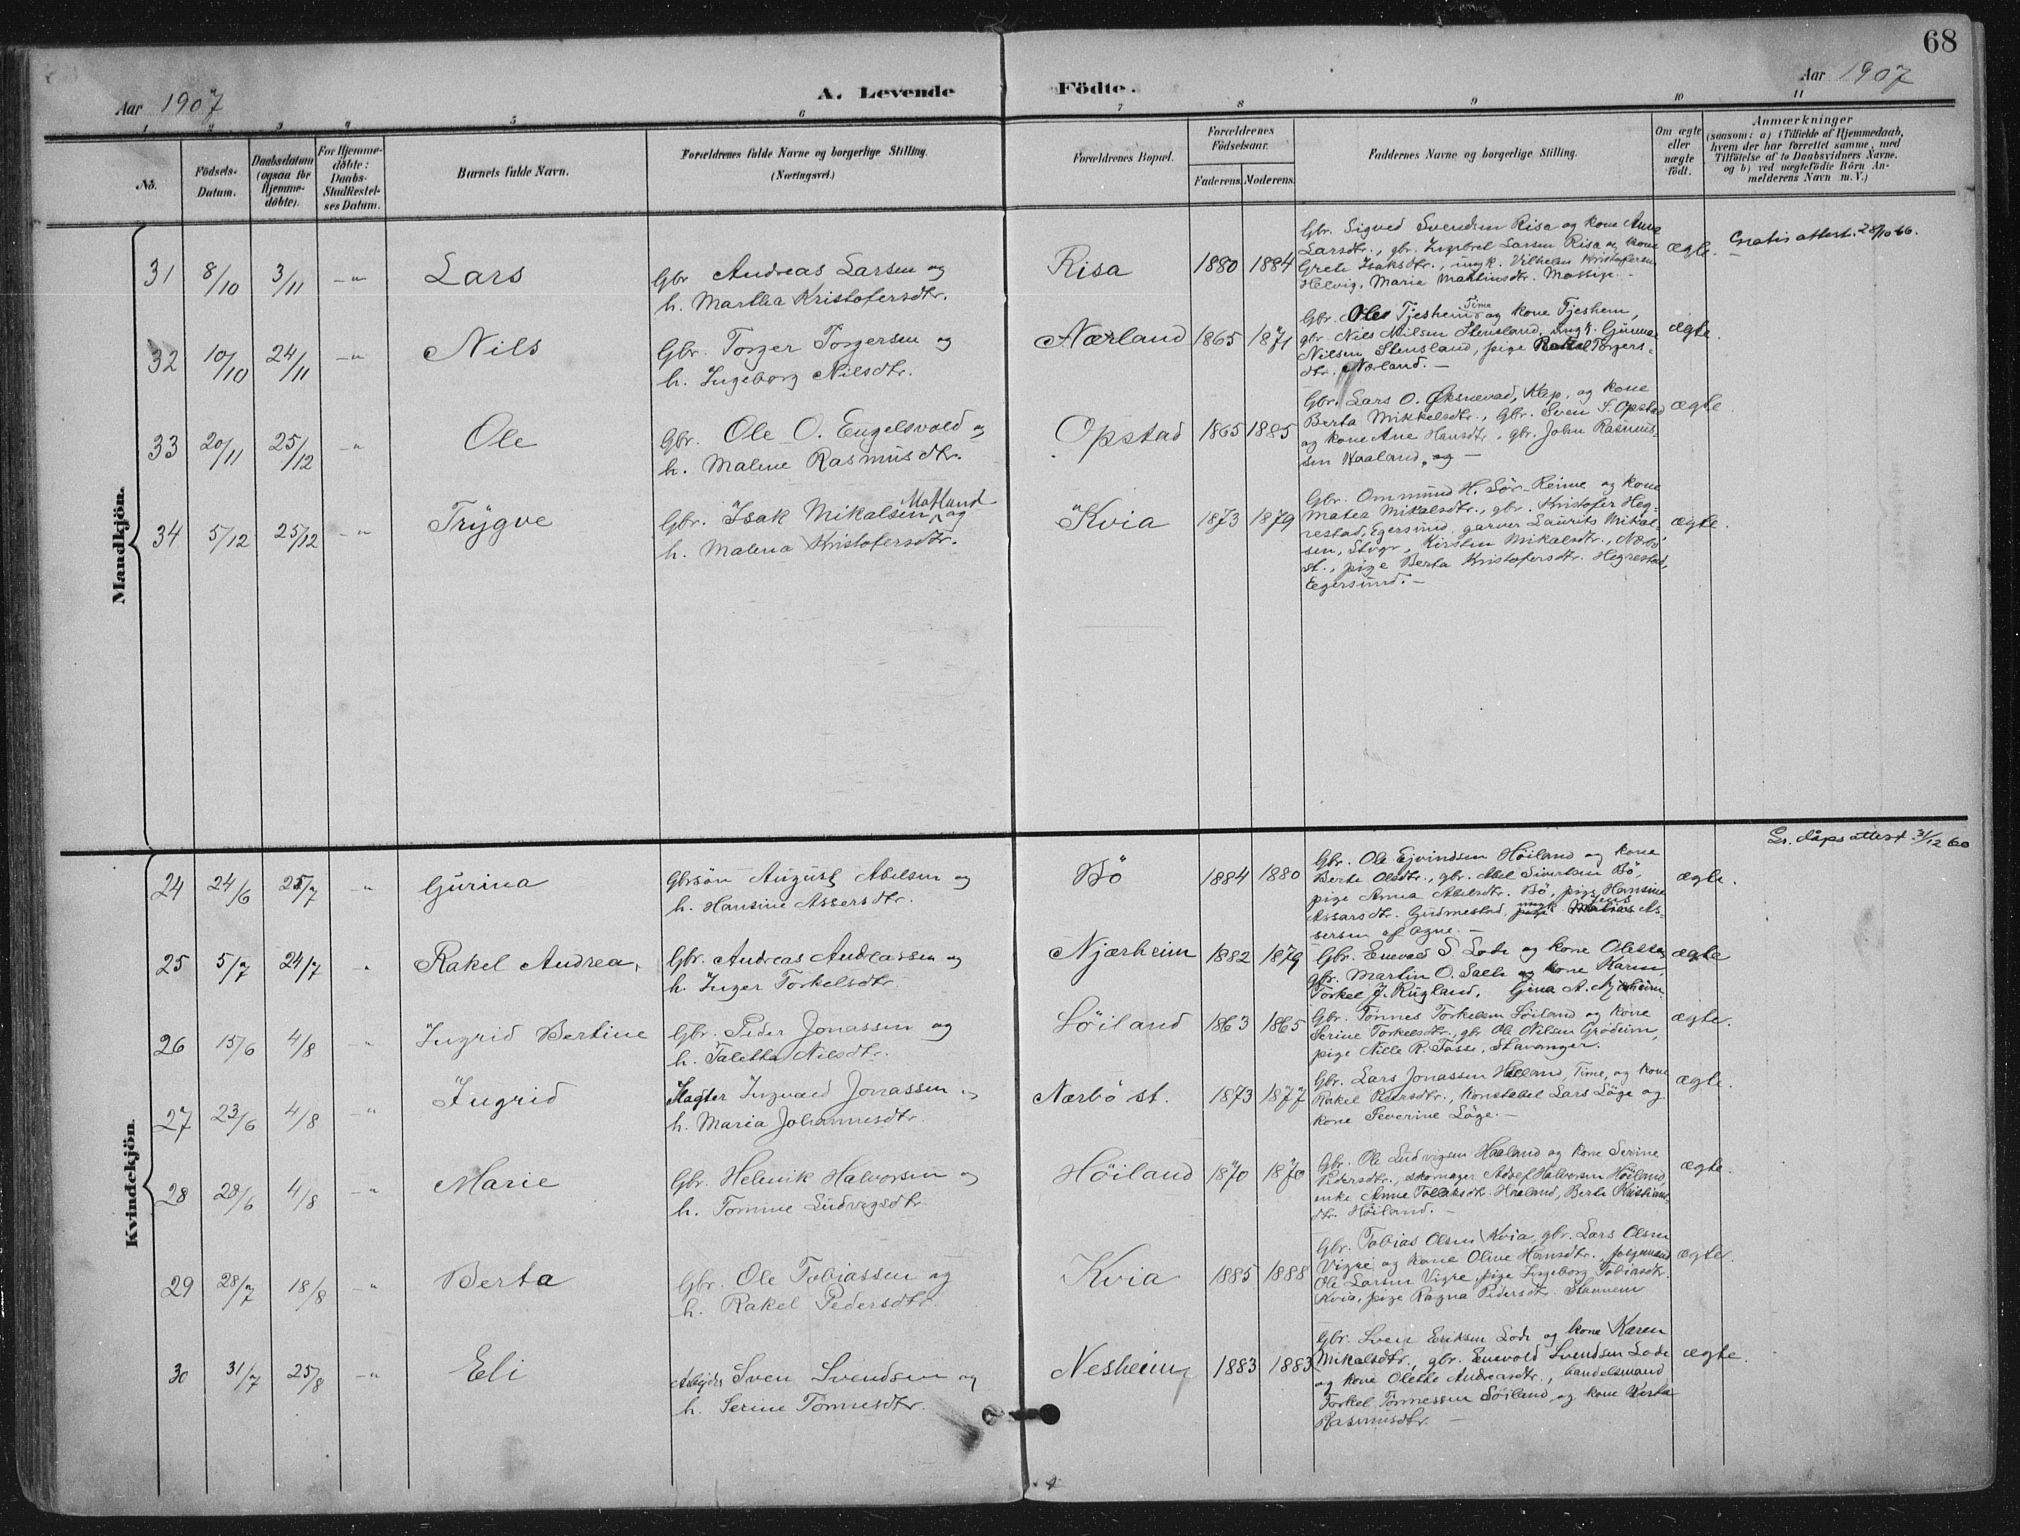 68
Aar 1907
A. Levende Födte.
Aar 1907
1 2 3 4 5 6 7 8 9 10 11
No.
Födsels-Datum.
Daabsdatum (ogsaa for Hjemme-döbte).
For Hjemme-döbte: Daabs-Stadfæstel-ses Datum.
Barnets fulde Navn.
Forældrenes fulde Navne og borgerlige Stilling. (Næringsvei.)
Forældrenes Bopæl.
Forældrenes Födselsaar.
Faderens. Moderens.
Faddernes Navne og borgerlige Stilling.
Om ægte eller uægte födt.
Anmærkninger
(saasom: a) i Tilfælde af Hjemmedaab, hvem der har forrettet samme, med Tilföielse af to Daabsvidners Navne. og b) ved uægtefödte Börn Anmelderens Navn m. V.)
Mandkjön.
31 8/10 3/11 -"- Lars
Gbr. Andreas Larsen og
h. Martha Kristofersdtr.
Risa 1880 1884
Gbr. Sigved Svendsen Risa og kone Anna
Larsdtr., gbr. Ingebret Larsen Risa og kone
Grete Isaksdtr., ungk. Vilhelm Kristofersen
Helvig, Maria Martinsdtr. Massige. -
ægte.
Gratis attest. 28/10 66.
32 10/10 24/11 -"- Nils
Gbr. Torger Torgersen og
h. Ingeborg Nilsdtr.
Nærland 1865 1871
Gbr. Ole Tjeshem Time og kone Tjeshem,
gbr. Nils Nilsen Stensland, ungk. Gunnar
Nilsen Stensland, pige Rakel Torgers-
dtr. Nærland. -
ægte.
33 20/11 25/12 " Ole
Gbr. Ole O. Engelsvold og
h. Malene Rasmusdtr.
Opstad 1865 1885
Gbr. Lars O. Øksnevad, Klep, og kone
Berta Mikkelsdtr., Gbr. Sven S. Opstad
og kone Ane Hansdtr., gbr. John Rasmus-
sen Haaland, og -
ægte.
34 5/12 25/12 -"- Trygve
Gbr. Isak Mikalsen Matland og
h. Malena Kristofersdtr.
Kvia 1873 1879
Gbr. Ommund H. Sör-Reime og kone
Matea Mikalsdtr., gbr. Kristofer Heg-
restad, Egersund, garver Laurits Mikal-
sen, Stvgr, Kirsten Mikalsdtr., Nærbö
st., pige Berta Kristofersdtr. Hegrestad,
Egersund. -
ægte.
Kvindekjön.
24 24/6 25/7 " Gurina
Gbrsön August Abelsen og
h. Hansine Assersdtr.
Bö 1884 1880
Gbr. Ole Ejvindsen Höiland og kone
Berte Olsdtr., gbr. Abel Sivertsen Bö,
pige Anna Abelsdtr. Bö, pige Hansine
Assarsdtr. Gudmestad, ungk. Jens As-
sersen af Ogne. -
ægte.
Gr. dåpsattest 31/12 60
25 5/7 24/7 " Rakel Andrea,
Gbr. Andreas Andreassen og
h. Inger Torkelsdtr.
Njærheim 1882 1879
Gbr. Enevald S. Lode og kone Oletta,
gbr. Martin O. Salte og kone Karen,
Torkel J. Rugland, Gina A. Njærheim.
ægte
26 15/6 4/8 " Ingrid Bertine
Gbr. Peder Jonassen og
h. Taletta Nilsdtr.
Söiland 1863 1865
Gbr. Tönnes Torkelsen Söiland og kone
Serine Torkelsdtr., gbr. Ole Nilsen Grödeim,
pige Nille R. Fosse, Stavanger.
ægte.
27 23/6 4/8 " Ingrid
Slagter Ingvald Jonassen og
h. Maria Johannesdtr.
Nærbö st. 1873 1877
Gbr. Lars Jonassen Helland, Time, og kone
Rakel Pedersdtr., konstabel Lars Löge og
kone Severine Löge. -
ægte.
28 28/6 4/8 -"- Marie
Gbr. Helmik Halvorsen og
h. Tomine Ludvigsdtr.
Höiland 1870 1870
Gbr. Ole Ludvigsen Haaland og kone Serine
Pedersdtr., skomager Adolf Halvorsen Höiland,
enke Anne Tollaksdtr. Haaland, Berte Kristians-
dtr. Höiland. -
ægte.
29 28/7 18/8 -"- Berta
Gbr. Ole Tobiassen og
h. Rakel Pedersdtr.
Kvia 1885 1888
Gbr. Tobias Olsen Kvia, gbr. Lars Olsen
Vigre og kone Oline Hansdtr.,
Ole Larsen Vigre, pige Ingeborg Tobiasdtr.
Kvia, pige Ragna Pedersdtr. Stannem
ægte.
30 31/7 25/8 -"- Eli
Arbejder Sven Svendsen og
h. Serine Tönnesdtr.
Nesheim 1883 1883
Gbr. Sven Eriksen Lode og kone Karen
Mikalsdtr., gbr. Enevold Svendsen Lode
og kone Olette Andreasdtr., handelsmand
Torkel Tönnessen Söiland, og kone Berta
Rasmusdtr. -
ægte.